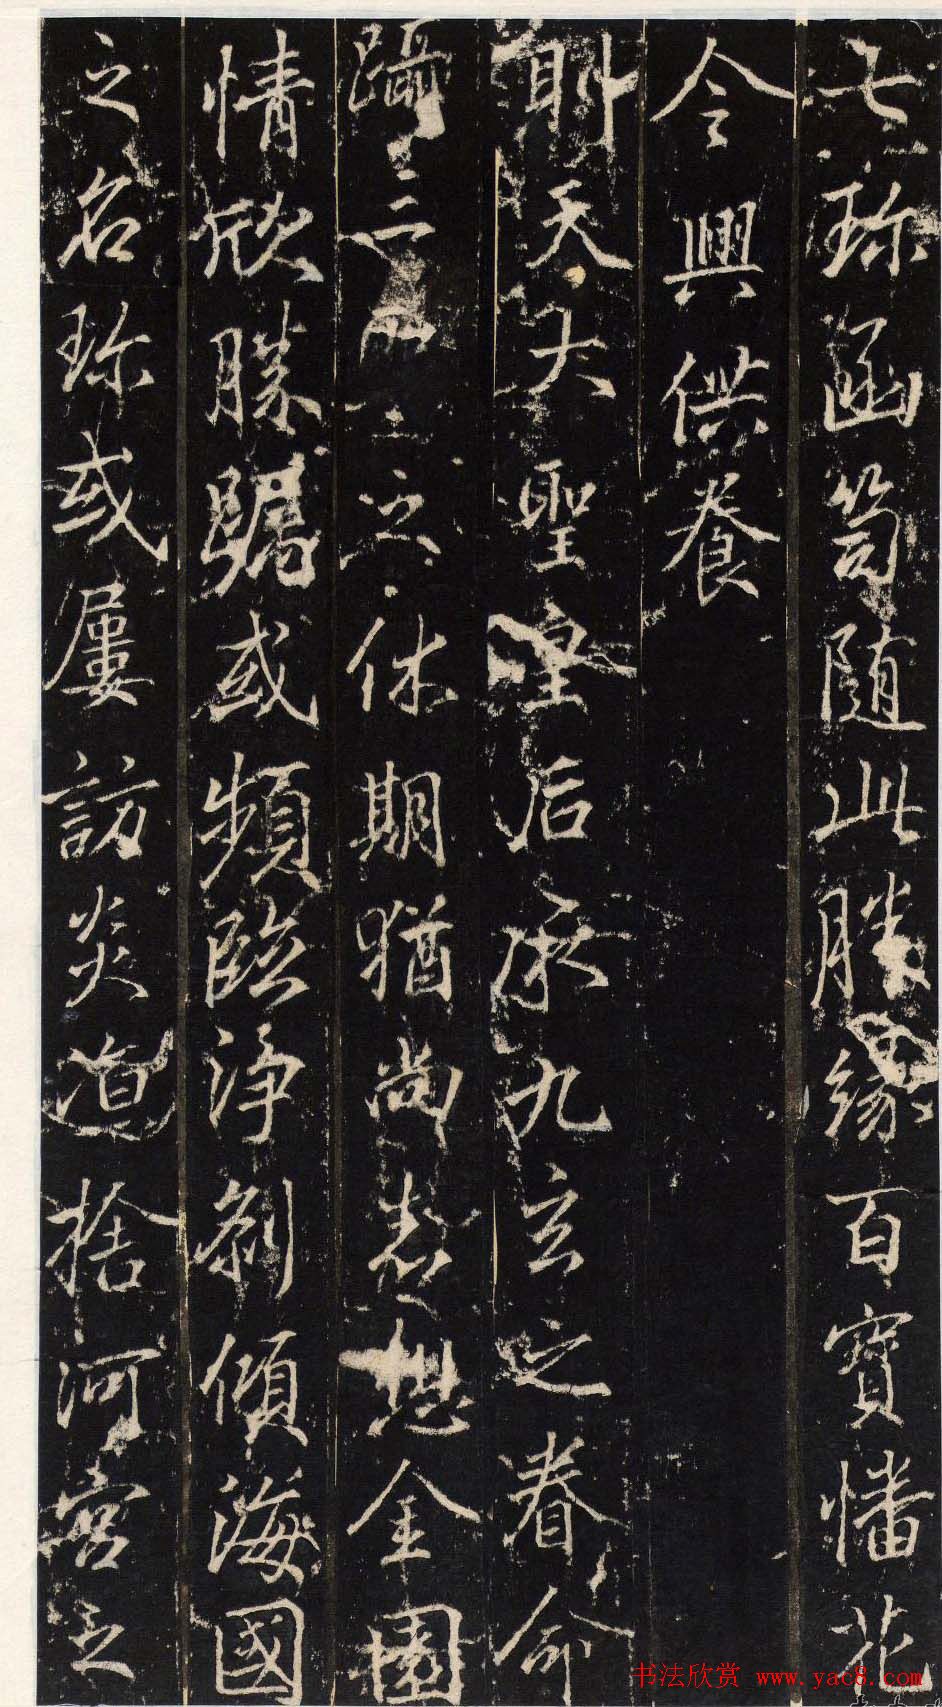 七珎函笥随此勝緣百寶幡花
令興供養
則天大聖皇后承九玄之眷命
躡三之休期猶尚想金園
情欣勝矚或頻臨淨刹傾海國
之名珎或屢訪炎涼捨河宮之
书法欣赏 www.yac8.com